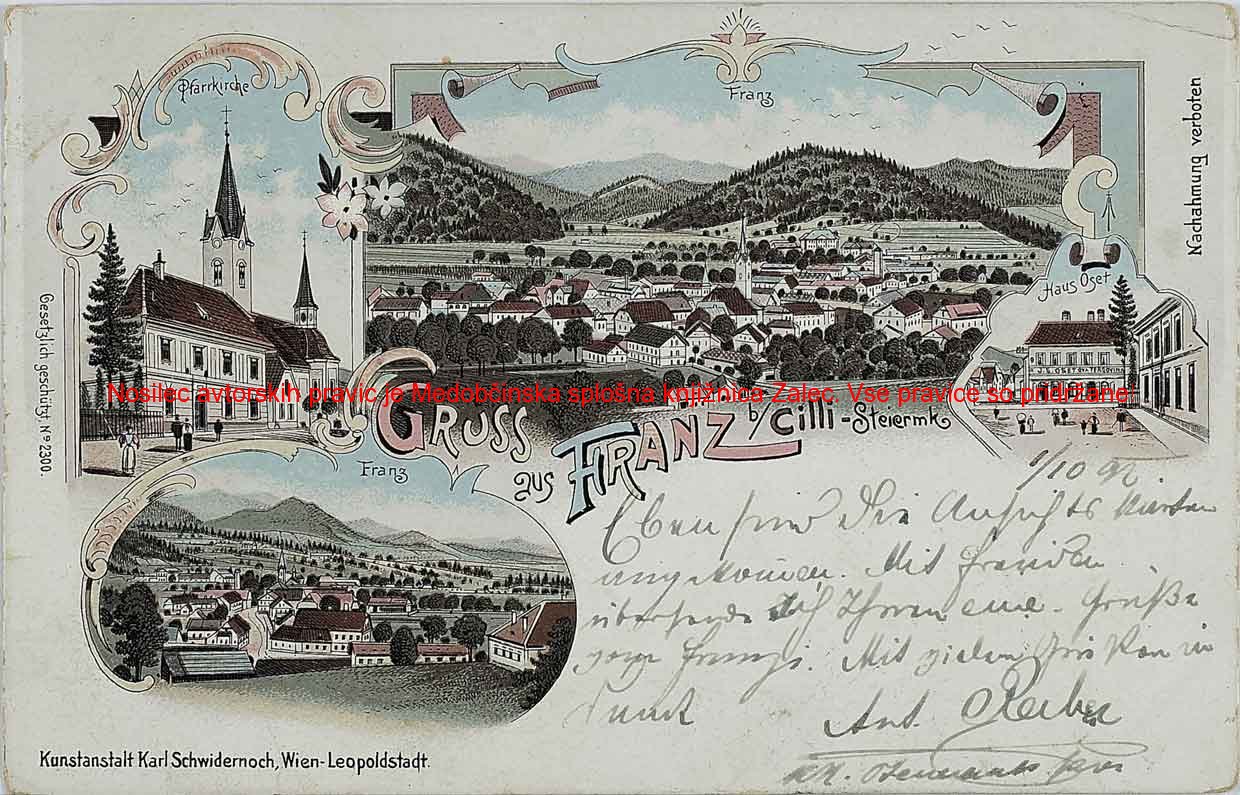 Pfarrkirche
Franz
Nachahmung verboten
Haus Oset
Gesetzlich geschützt, No 2300.
Nosilec avtorskih pravic je Medobčinska splošna knjižnica Žalec. Vse pravice so pridržane
GRUSS
aus FRANZ b/Cilli-Steiermk
Franz
1/10 97
Eben sind die Ansichts Karten
angekommen. Mit Freuden
übersende ich Ihnen eine. Grüße
Mit vielen
Ant.
Kunstanstalt Karl Schwidernoch, Wien-Leopoldstadt.